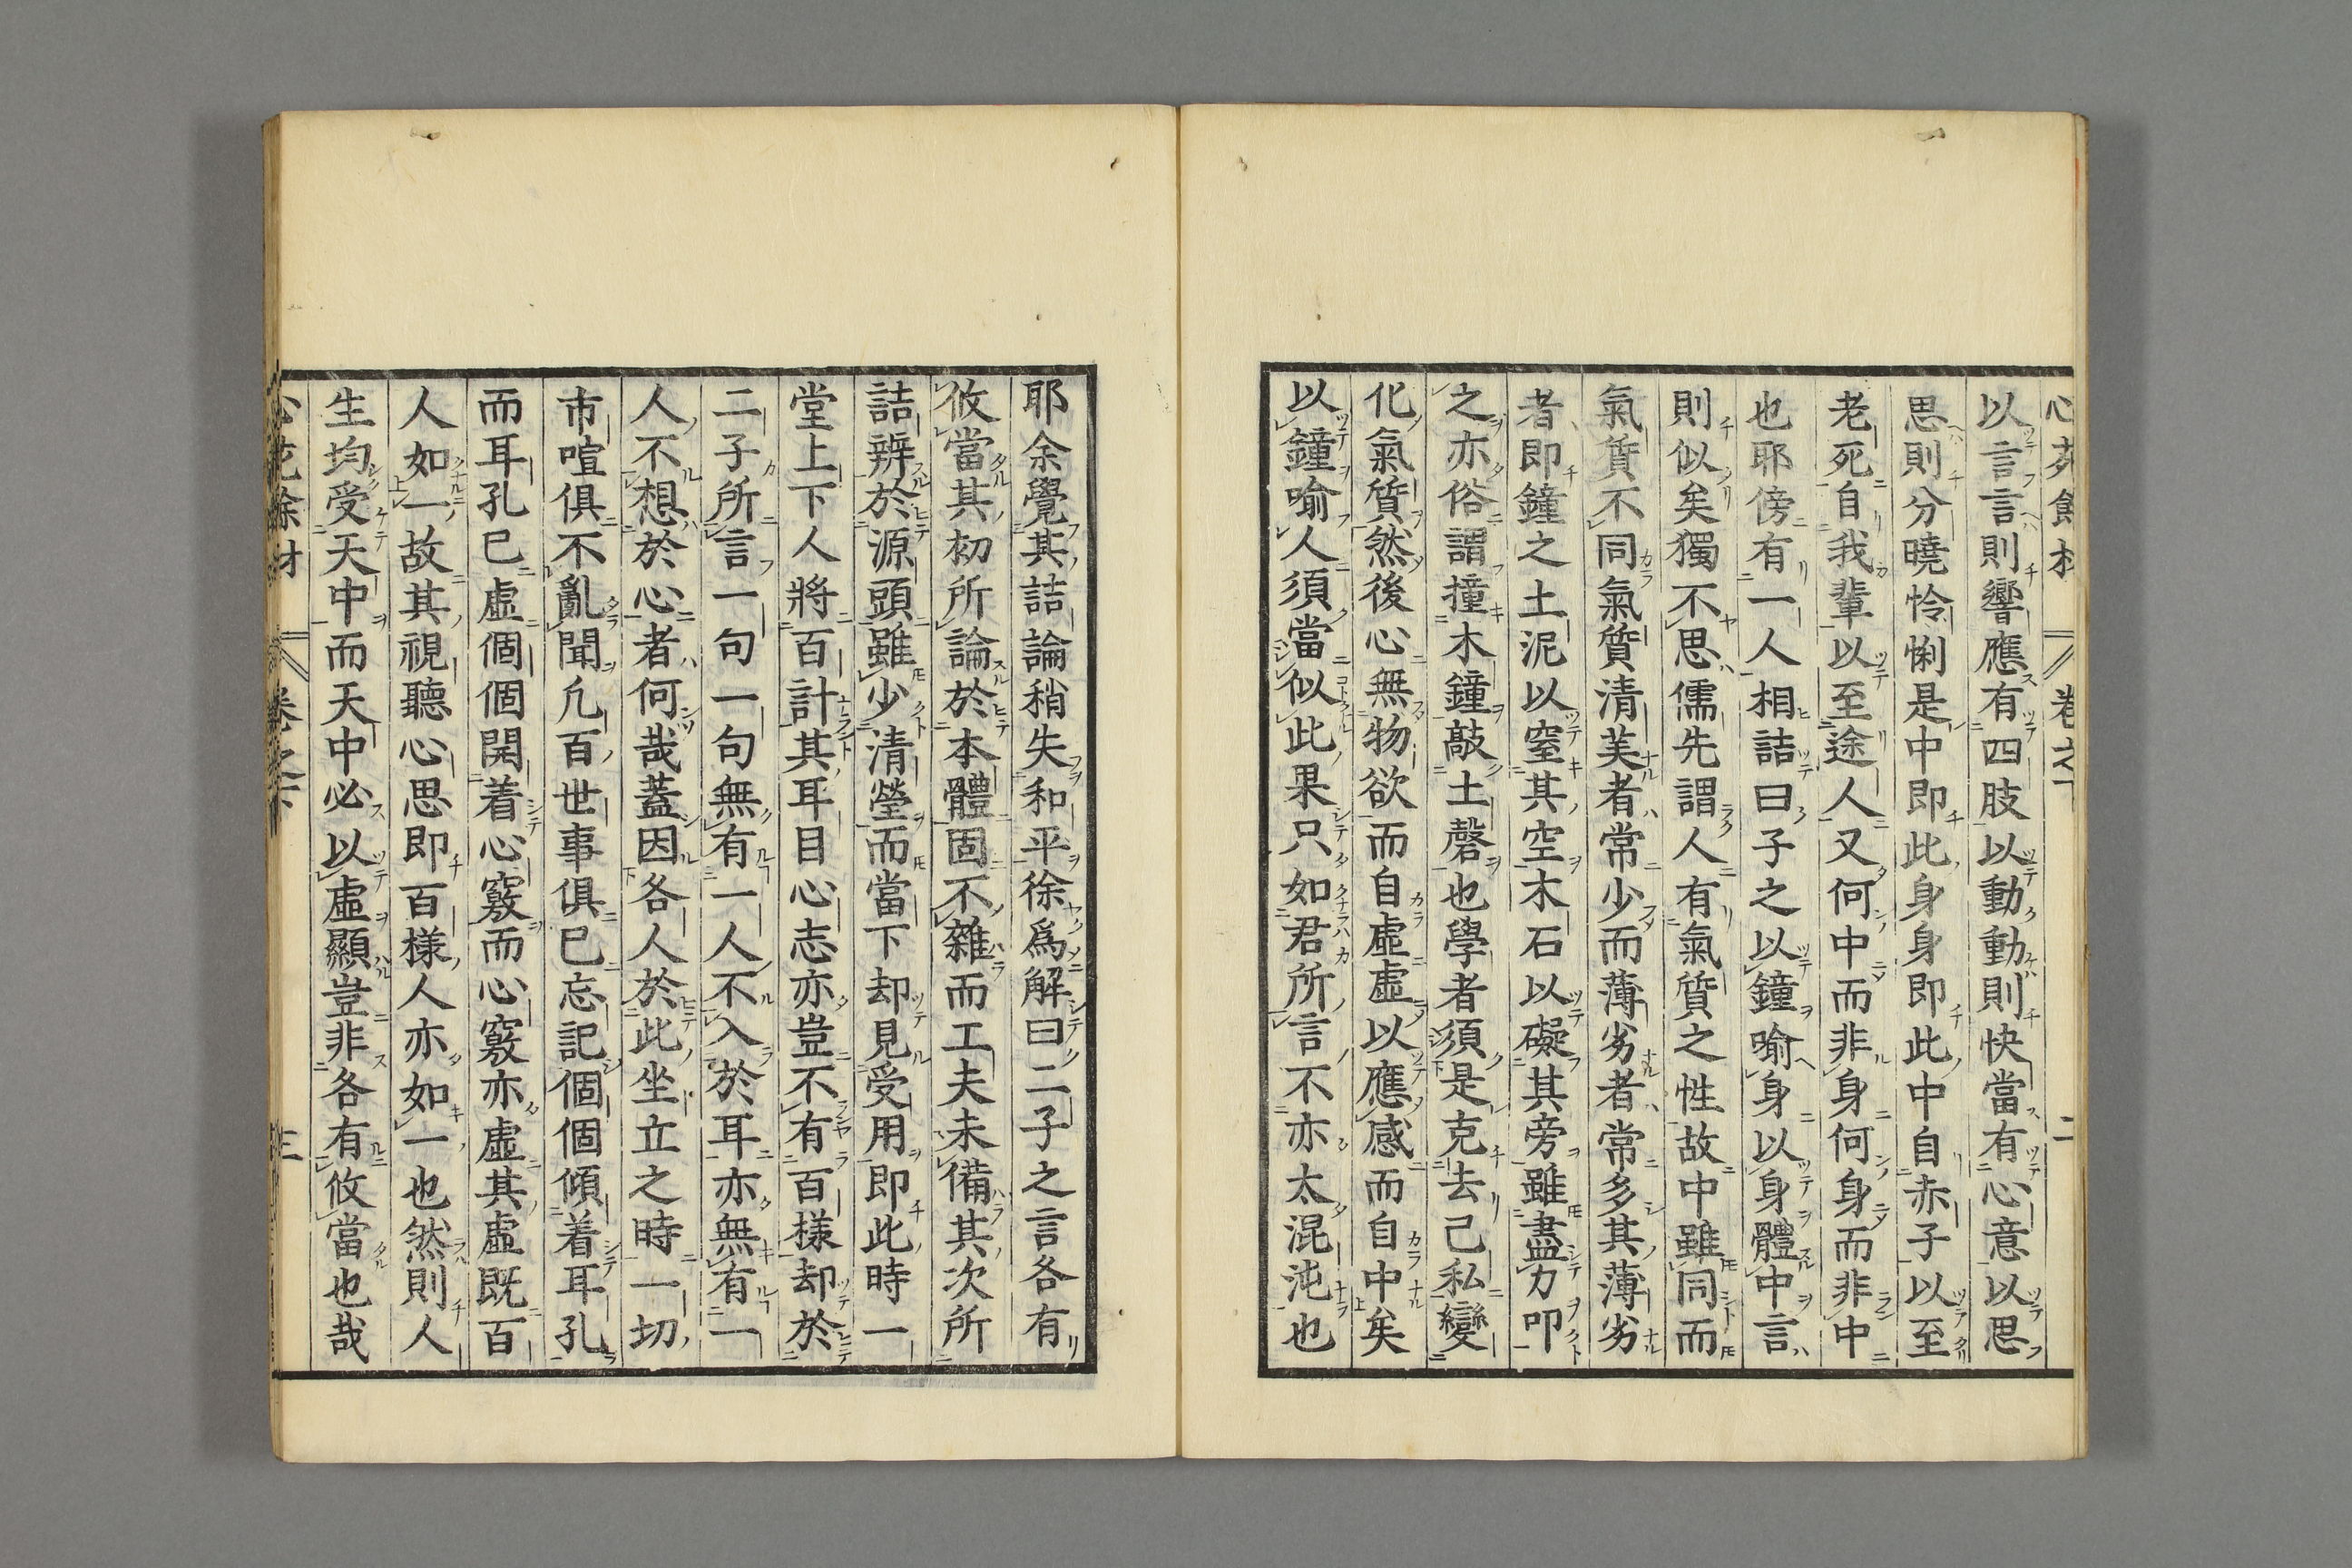 以言言則響應有四肢以動動則快當有心意以思
思則分曉怜悧是中即此身身即此中自赤子以至
老死自我輩以至途人又何中而非身何身而非中
也耶傍有一人相詰曰子之以鐘喻身以身體中言
則似矣獨不思儒先謂人有氣質之性故中雖同而
氣質不同氣質清美者常少而薄劣者常多其薄劣
者即鐘之土泥以窒其空木石以礙其旁雖盡力叩
之亦俗謂撞木鐘敲土磬也學者須是克去己私變
化氣質然後心無物欲而自虛虛以應感而自中矣
以鐘喻人須當似此果只如君所言不亦太混沌也
耶余覺其詰論稍失和平徐為解曰二子之言各有
攸當其初所論於本體固不雜而工夫未備其次所
詰辨於源頭雖少清瑩而當下却見受用即此時一
堂上下人將百計其耳目心志亦豈不有百樣却於
二子所言一句一句無有一人不入於耳亦無有一
人不想於心者何哉蓋因各人於此坐立之時一切
市喧俱不亂聞凢百世事俱已忘記個個傾着耳孔
而耳孔已虛個個開着心竅而心竅亦虛其虛既百
人如一故其視聽心思即百樣人亦如一也然則人
生均受天中而天中必以虛顯豈非各有攸當也哉
卷之下
三